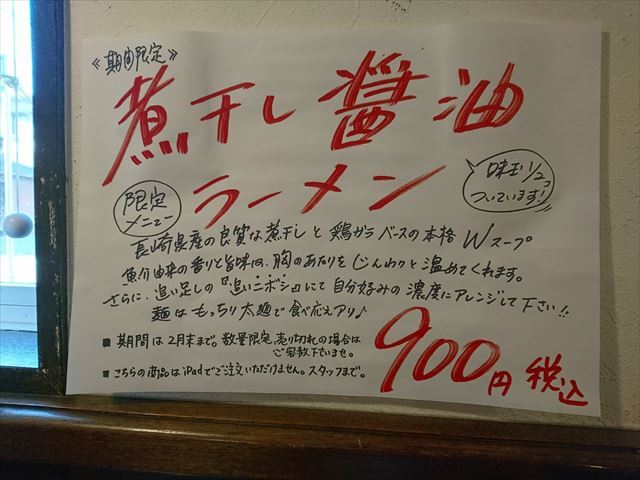 《期間限定》
煮干し醤油
ラーメン
味玉1/2コ
ついています!
限定
メニュー
長崎県産の良質な煮干しと鶏ガラベースの本格Wスープ
魚介由来の香りと旨味が、胸のあたりをじんわりと温めてくれます。
さらに、追い足しの『追いニボシ』にて自分好みの濃度にアレンジして下さい!!
麺はもっちり太麺で食べ応えアリ♪
■ 期間は2月末まで。数量限定、売り切れの場合は
ご容赦下さいませ。
■ こちらの商品はiPadでご注文いただけません。スタッフまで。
900円 税込